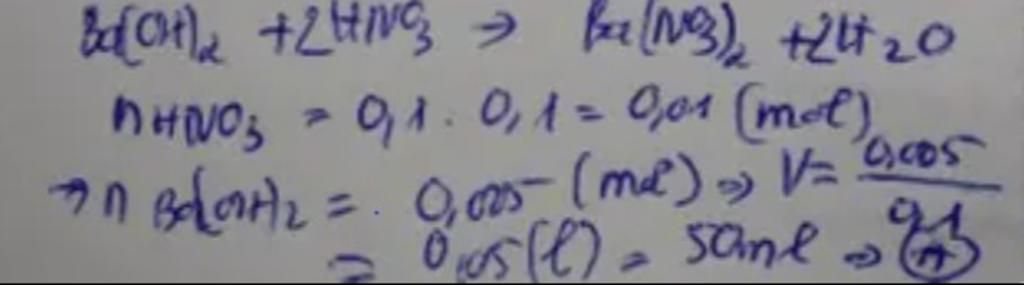 Ba(OH)2 + 2HNO3 → Ba(NO3)2 + 2H2O
nHNO3 = 0,1 . 0,1 = 0,01 (mol)
→ n Ba(OH)2 = . 0,005 (mol) => V = 0,005 / 0,1
= 0,05 (l) = 50ml => A